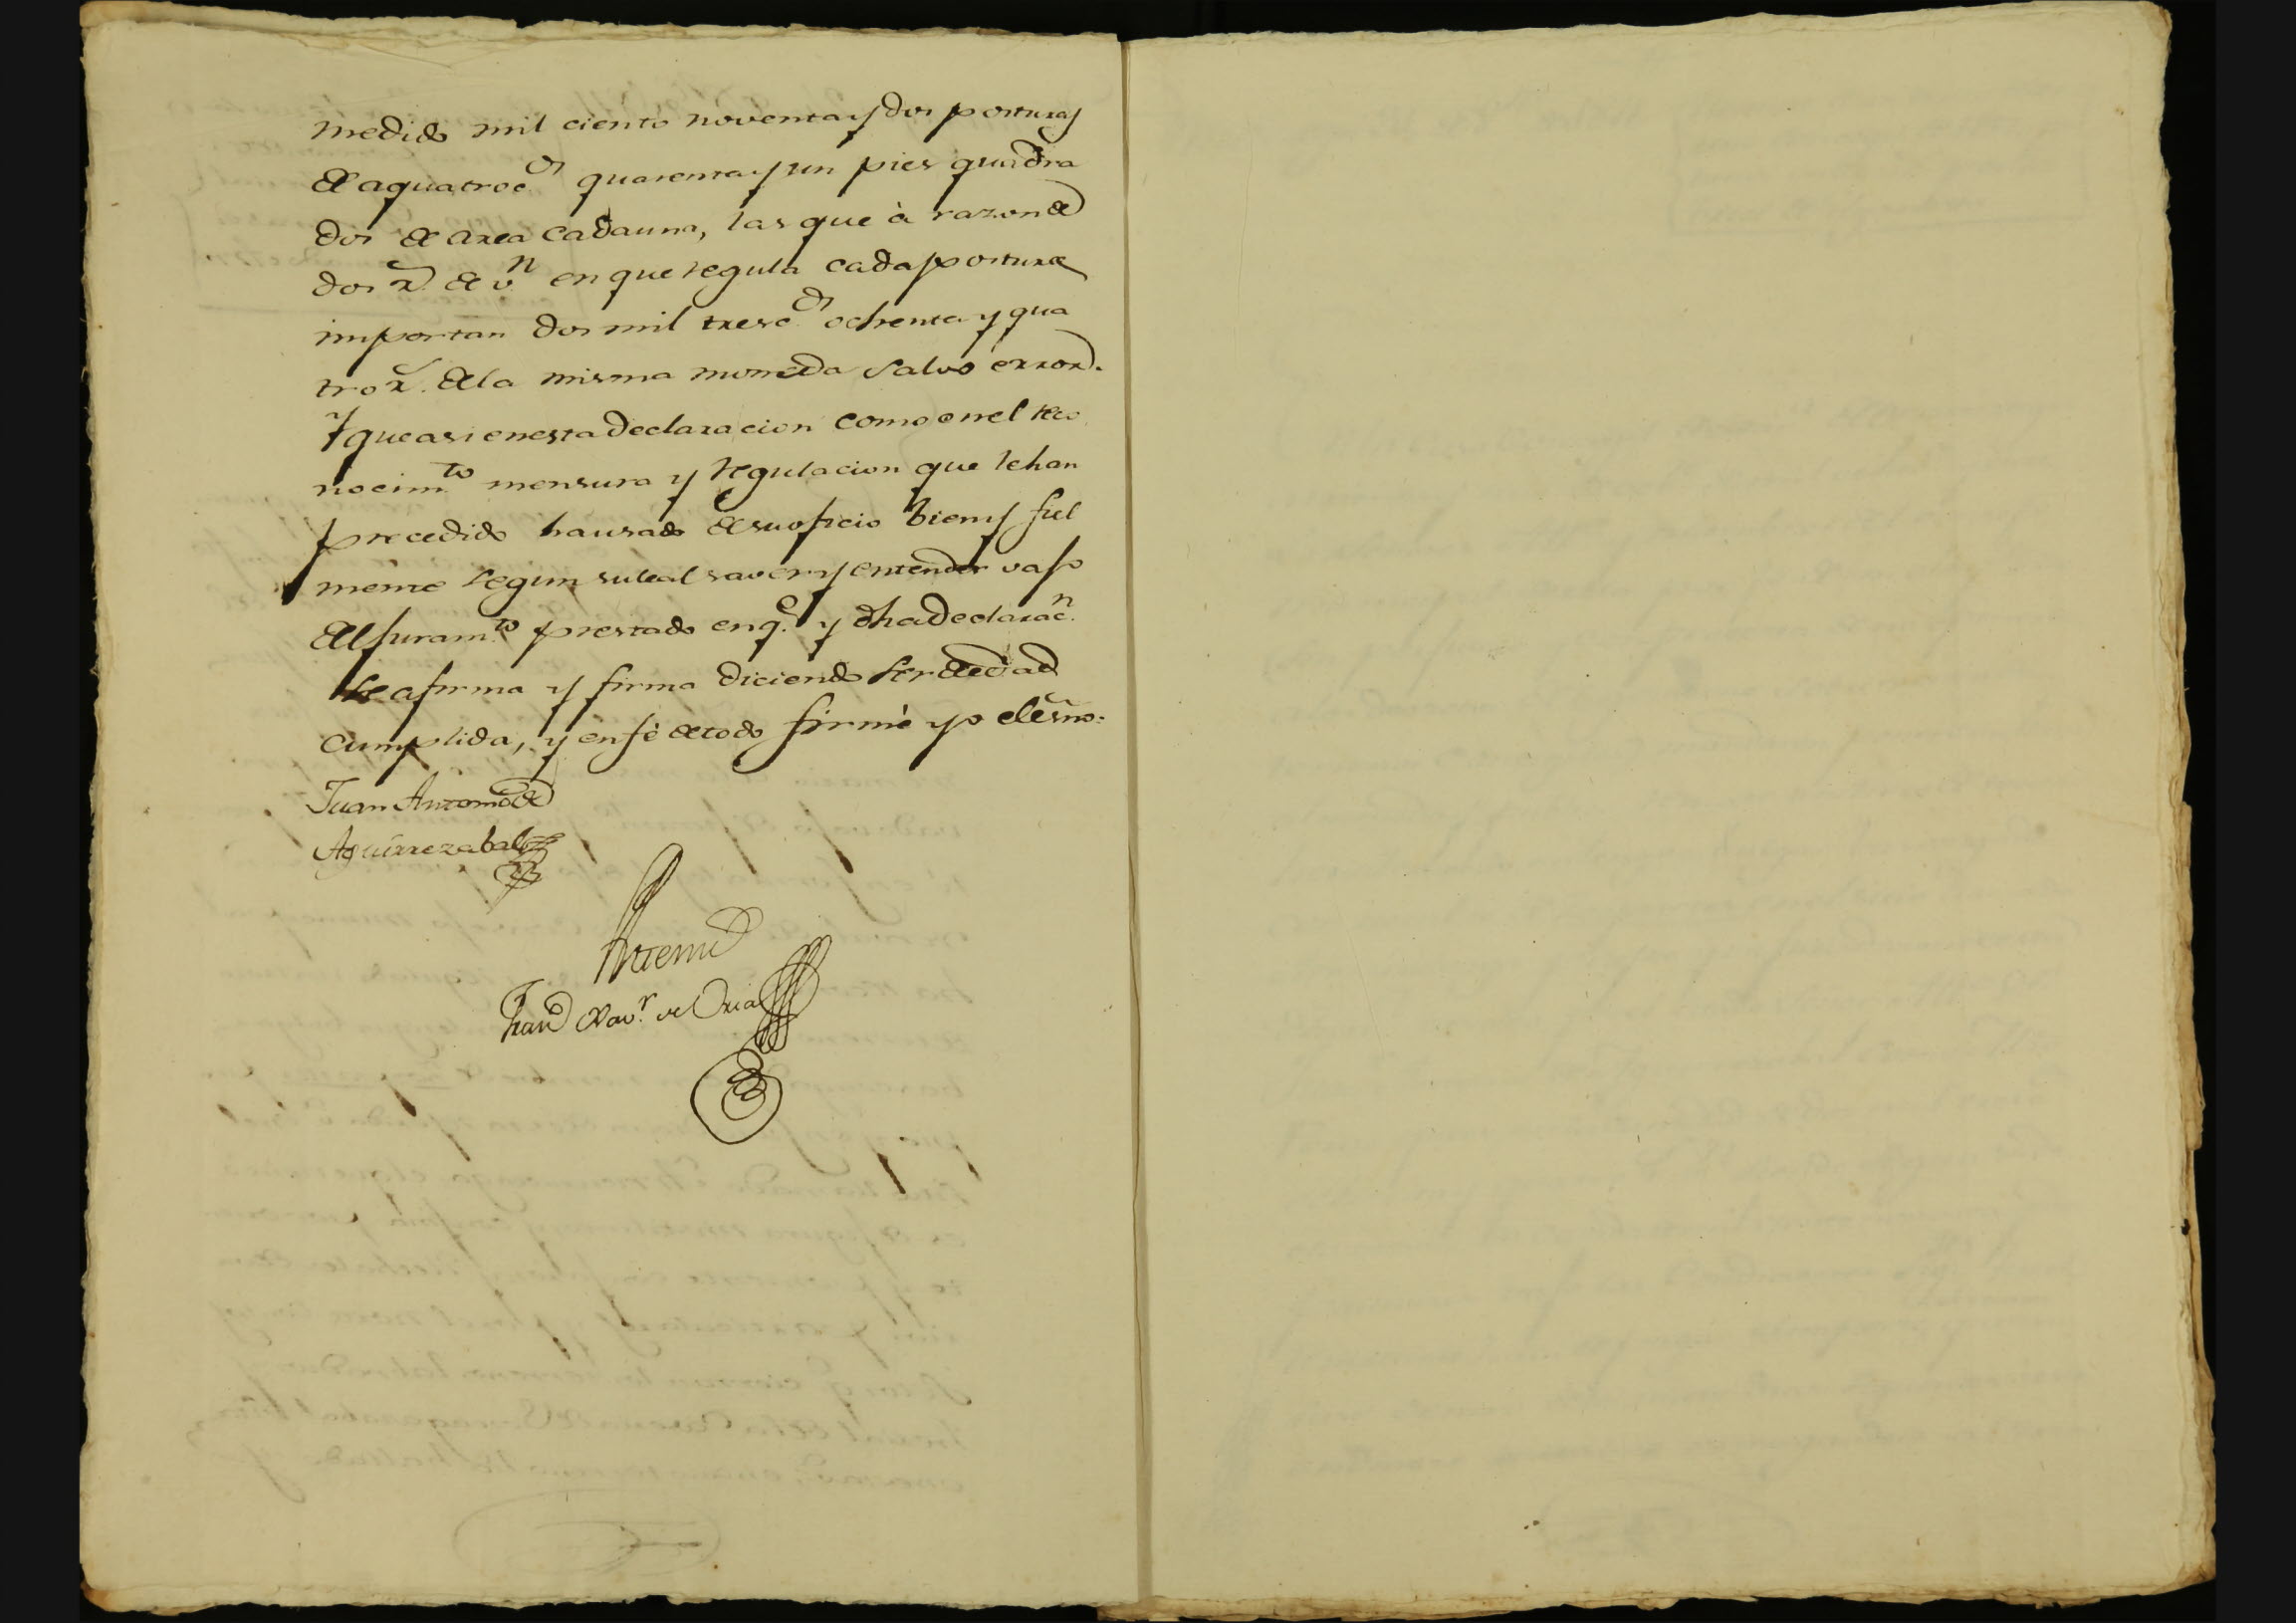 medido mil ciento noventa y dos posturas
de a quatroc.os quarenta y un pies quadra
dos de area cada una, las que à razon de
dos r.s de v.n en que regula cada postura
importan dos mil tresc.os ochenta y qua
tro r.s de la misma moneda salvo érror.
Y que asi en esta declaracion como en el reco
nocim.to mensura y regulacion que le han
precedido ha usado de su oficio bien y fiel
mente segun su leal saver y entender vajo
del juram.to prestado en q.e y dha declarac.n
se afirma y firma diciendo ser de edad
cumplida, y en fè de todo firmè yo el esño.
Juan Antonio de
Aguirrezabal
Antemi
Fran.co Xav.r de Oria